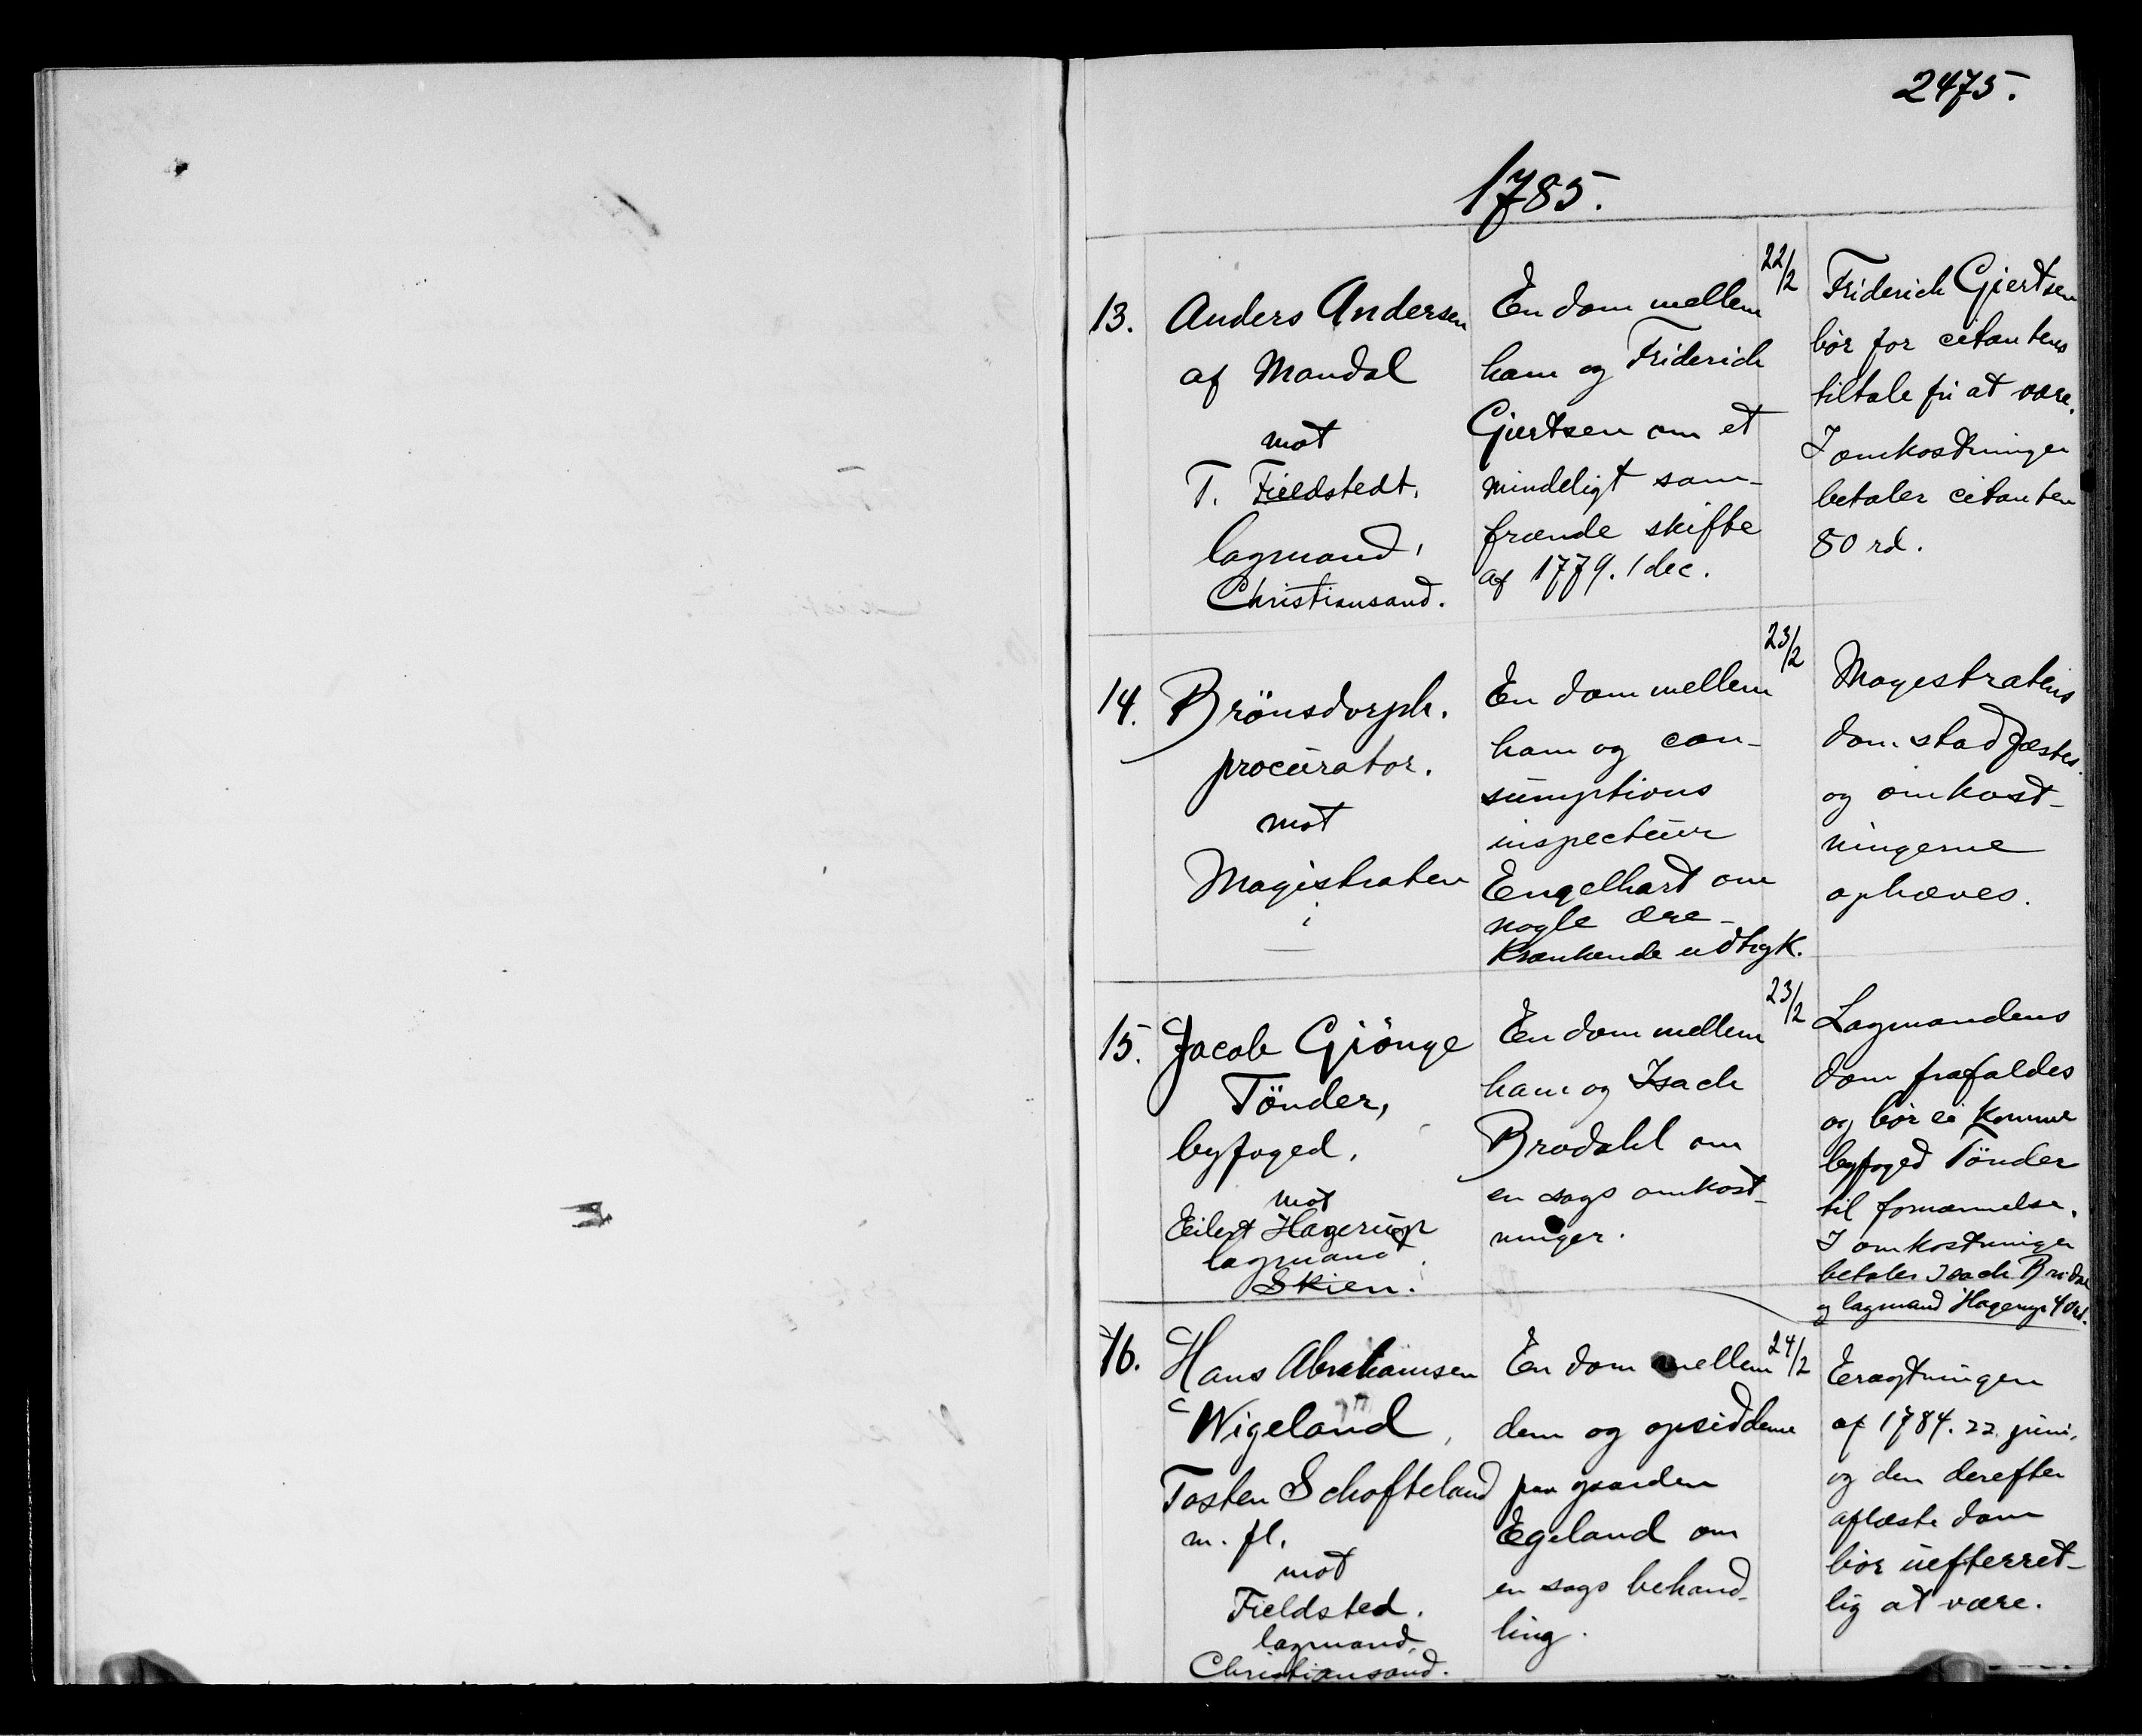 2475.
1785.
13.
Anders Andersen
af Mandal
mot
T. Fieldstedt,
lagmand,
Christiansand.
En dom mellem
ham og Friderich
Giertsen om et
mindeligt sam-
frænde skifte
af 1779. 1 dec.
22/2
Friderich Giertsen
bør for citantens
tiltale fri at være.
I omkostninger
betaler citanten
80 rd.
14.
Brönsdorph.
procürator.
mot
Magistraten
i
—
En dom mellem
ham og con-
sümptions
inspecteür
Engelhart om
nogle ære-
krænkende udtryk.
23/2
Magestratens
dom stadfæstes
og omkost-
ningerne
ophæves.
15.
Jacob Giönge
Tönder,
byfoged,
mot
Eilert Hagerüp
lagmand
Skien.
En dom mellem
ham og Isach
Brodahl om
en sags omkost-
ninger.
23/2
Lagmandens
dom frafaldes
og bør ei komme
byfoged Tönder
til fornærmelse.
I omkostninger
betaler Isach Brodal
og lagmand Hagerup 40 rd.
16.
Hans Abrahamsen
Wigeland,
Tosten Schofteland
m. fl.
mot
Fieldsted.
lagmand,
Christiansand.
En dom mellem
dem og opsidderne
paa gaarden
Egeland om
en sags behand-
ling.
24/2
Eragtningen
af 1784. 22. juni,
og den derefter
aflæste dom
bør üefterret-
lig at være.